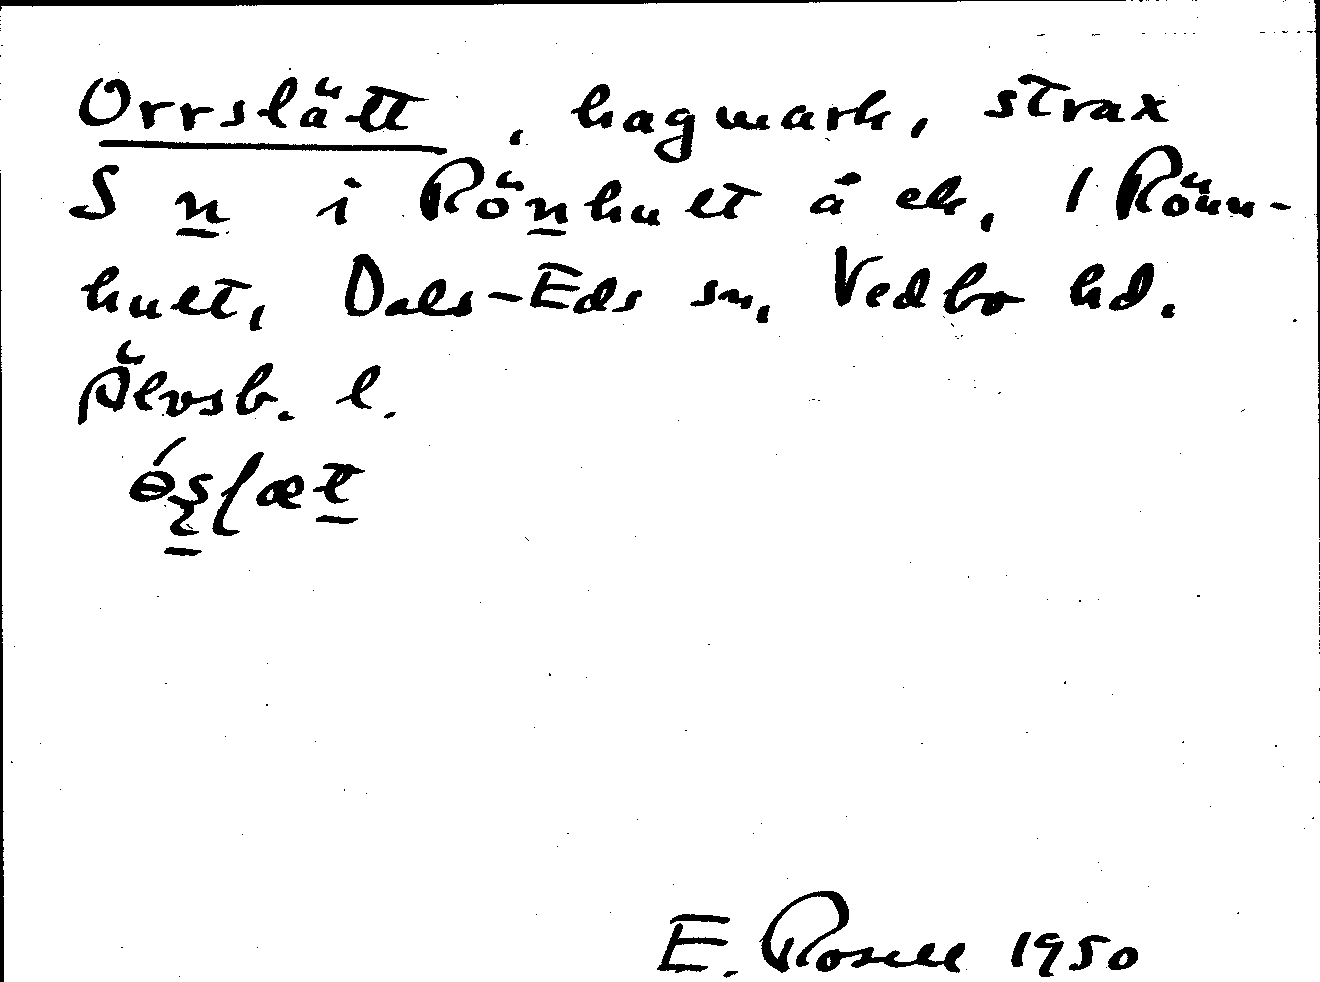 Orrslätt, hagmark, strax
S n i Rönhult å ek, 1 Rönn-
hult, Dals-Eds sn, Vedbo hd.
Älvsb. l.
E. Rosell 1950